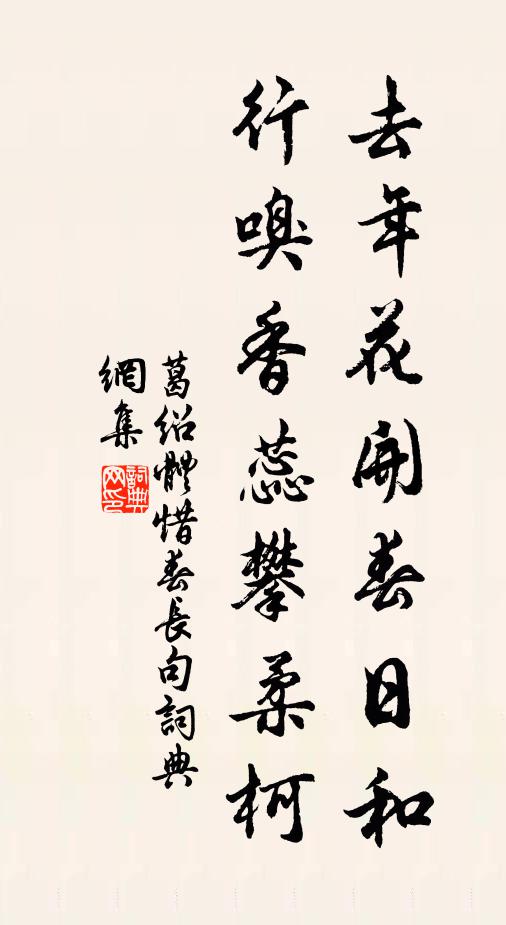 去年花開春日和
行嗅香蕊攀柔柯
葛绍體惜春長句詞典
網集
詞典
网印